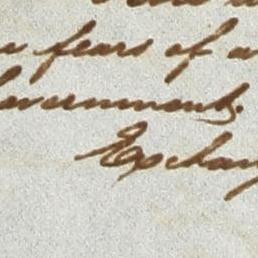 fears of
Government.
Exchang